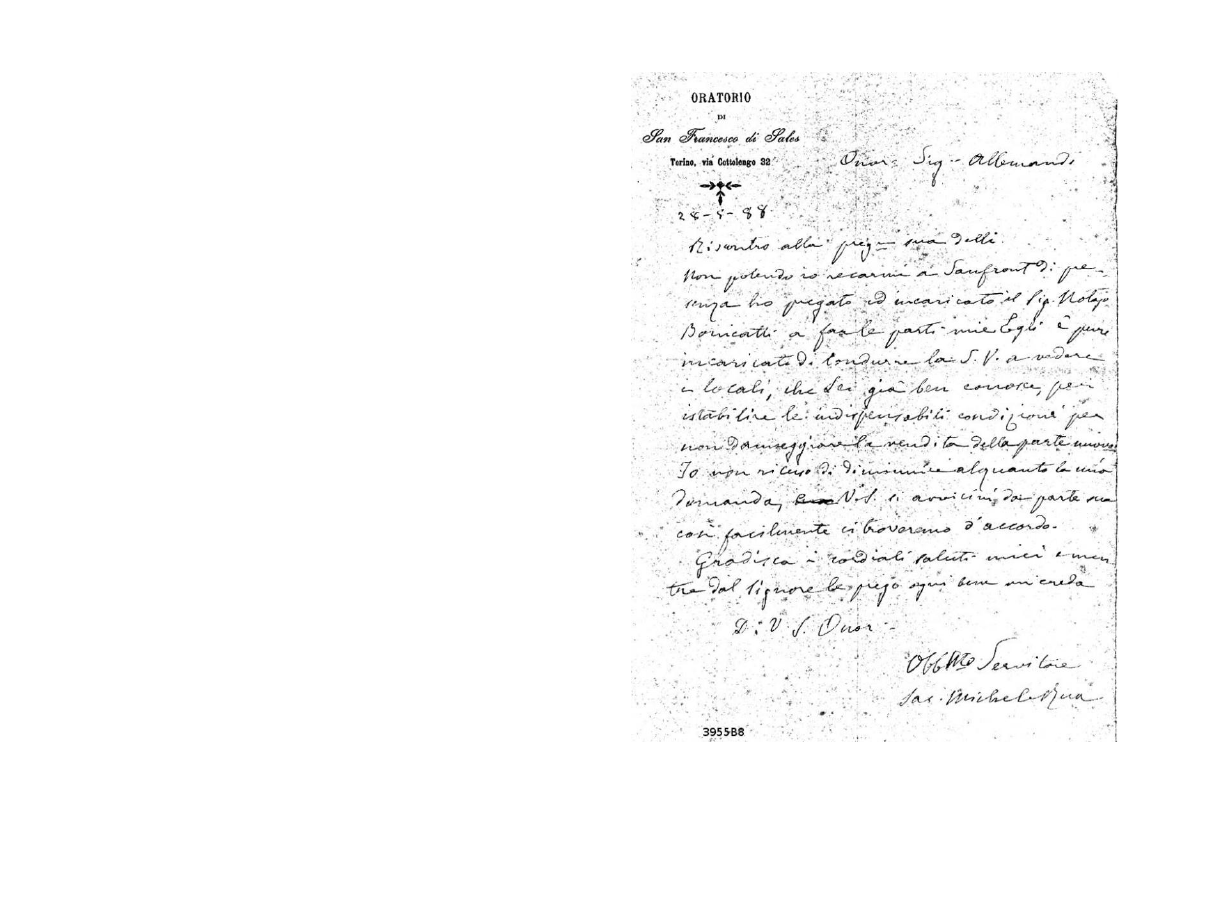 ORATORIO
DI
San Francesco di Sales
Torino, via Cottolengo 32
Onor. Sig. Allemandi
28-5-88
Riscontro alla preg. sua delli.
Non potendo io recarmi a Sanfront di pre-
senza ho pregato ed incaricato il Sig. Notajo
a far le parti mie Egli è pure
incaricato di condurre la S. V. a vedere
i locali, che Lei già ben conosce, per
istabilire le indispensabili condizioni per
non danneggiare la vendita della parte nuova
Io non ricuso di diminuire alquanto la mia
domanda, V.S. si avvicini da parte sua
così facilmente ci troveremo d'accordo.
Gradisca i cordiali saluti miei e men
tre dal Signore le prego ogni bene mi creda
D. V. S. Onor.
Obbmo Servitore
Sac. Michele Rua
3955B8